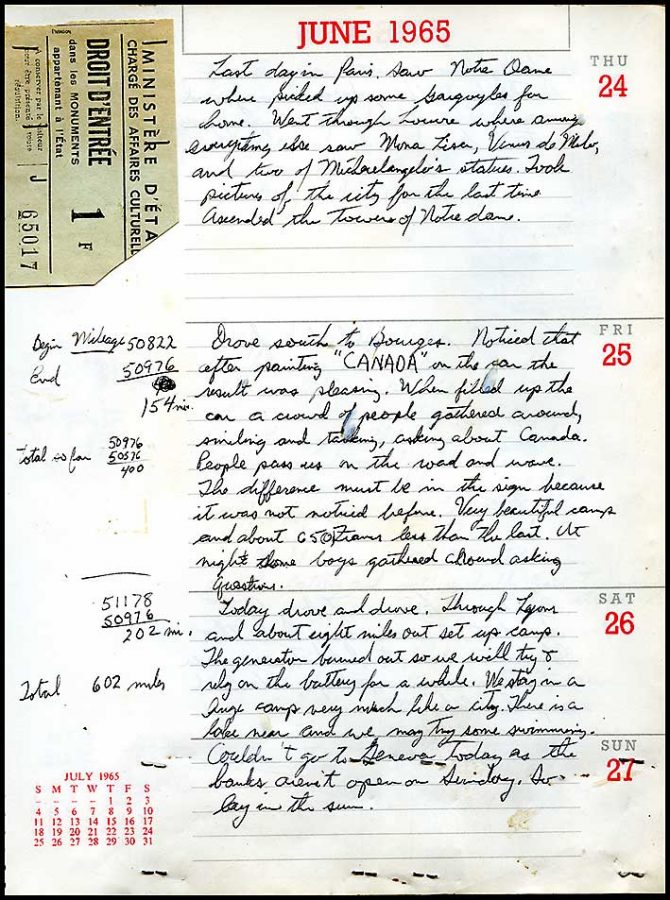 JUNE 1965
MINISTÈRE D'ÉTA
CHARGÉ DES AFFAIRES CULTUREL
DROIT D'ENTRÉE
dans les MONUMENTS
appartenant à l'État
1 F
A conserver par le visiteur
J 65017
THU
24
Last day in Paris. Saw Notre Dame
where picked up some gargoyles for
home. Went through Louvre where among
everything else saw Mona Lisa, Venus de Milo,
and two of Michaelangelo's statues. Took
pictures of the city for the last time
Ascended the towers of Notre dame.
FRI
25
Begin Mileage 50822
End 50976
154 mi.
Total so far 50976
50576
400
Drove south to Bourges. Noticed that
after painting "CANADA" on the car the
result was pleasing. When filled up the
car a crowd of people gathered around,
smiling and talking, asking about Canada.
People pass us on the road and wave.
The difference must be in the sign because
it was not noticed before. Very beautiful camp
and about 650 francs less than the last. At
night some boys gathered around asking
questions.
SAT
26
51178
50976
202 mi.
Total 602 miles
Today drove and drove. Through Lyons
and about eight miles out set up camp.
The generator burned out so we will try &
rely on the battery for a while. We stay in a
huge camp very much like a city. There is a
lake near and we may try some swimming.
SUN
27
Couldn't go to Geneva today as the
banks aren't open on Sunday. So
lay in the sun.
JULY 1965
S M T W T F S
– – – – 1 2 3
4 5 6 7 8 9 10
11 12 13 14 15 16 17
18 19 20 21 22 23 24
25 26 27 28 29 30 31